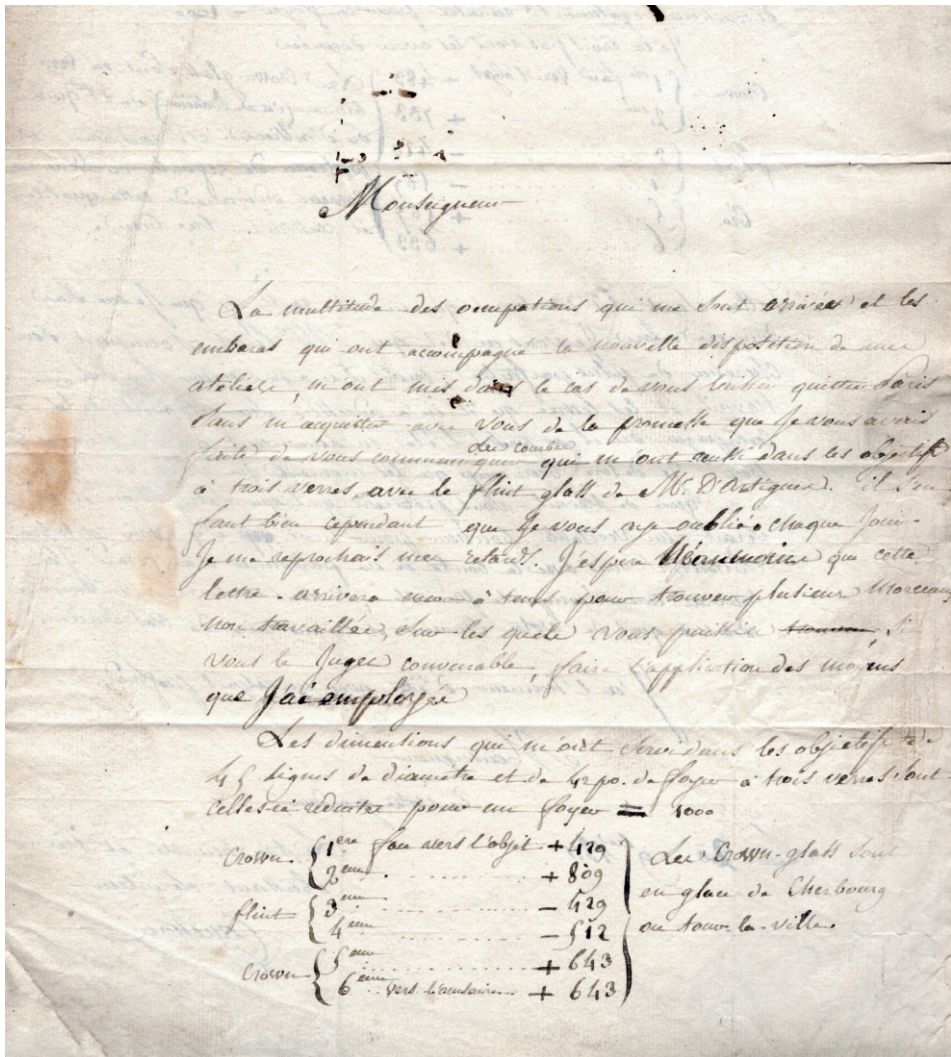 Monseigneur
La multitude des ocupations qui me sont arrivées et les
embaras qui ont accompagné la nouvelle disposition de mes
ateliers, m'ont mis dans le cas de vous laisser quitter Paris
sans m'acquitter avec vous de la promesse que je vous avois
faite de vous communiquer les courbes qui m'ont réussi dans les objectifs
à trois verres, avec le flint glass de Mr. D'Artigues. il s'en
faut bien cependant que je vous aye oublié. chaque jour
Je me reprochais mes retards. J'espère Néanmoins que cette
lettre arrivera encore à tems pour trouver plusieurs morceaux
non travaillés, sur les quels vous puissiez si
vous le jugez convenable, faire l'application des moyens
que J'ai employés
Les dimentions qui m'ont servi dans les objectifs de
45 lignes de diametre et de 42 po. de foyer à trois verres sont
celles-ci reduites pour un foyer = 1000
Crown { 1ere face vers l'objet + 429
2eme + 809
flint { 3eme - 429
4eme - 512
Crown { 5eme + 643
6eme vers l'oculaire + 643
Les Crown-glass sont
en glace de Cherbourg
ou tour-la-ville.